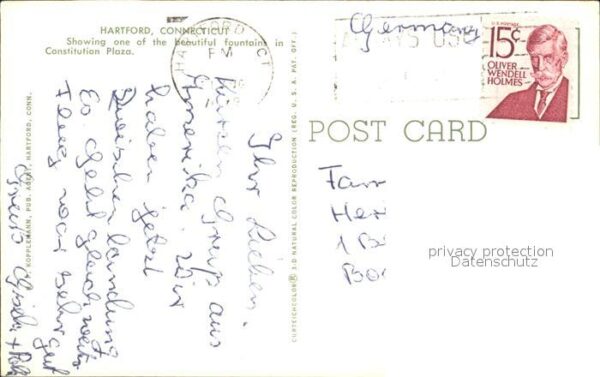 HARTFORD, CONNECTICUT
Showing one of the beautiful fountains in
Constitution Plaza.
PM
CT
Germany
U.S. POSTAGE
15¢
OLIVER
WENDELL
HOLMES
POST CARD
CURTEICHCOLOR® 3-D NATURAL COLOR REPRODUCTION (REG. U. S. A. PAT. OFF.)
KOPPLEMANN, PUB. AGENT, HARTFORD, CONN.
Ihr Lieben,
Kurzen Gruß aus
Amerika. Wir
haben jetzt
Zwischenlandung
Es geht gleich weiter
Flug war sehr gut
Gisela +
Fam
He
privacy protection
Datenschutz